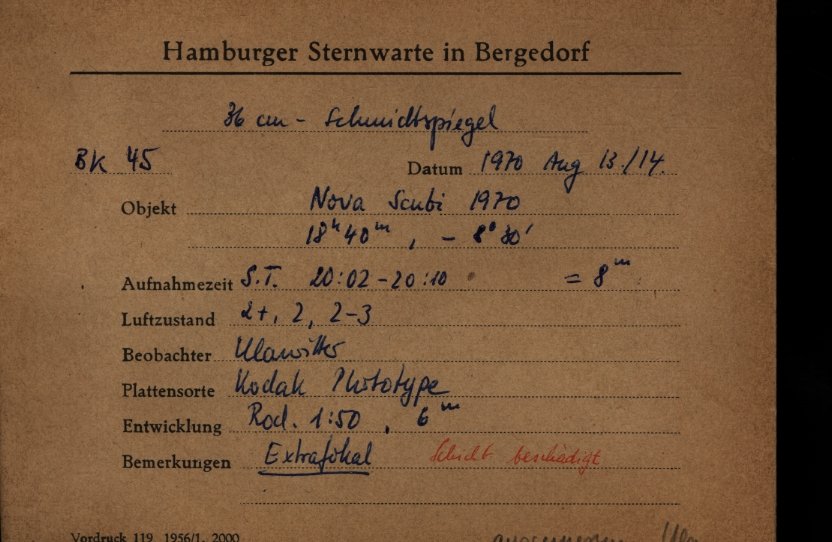 Hamburger Sternwarte in Bergedorf
36 cm - Schmidtspiegel
BK 45 Datum 1970 Aug 13./14.
Objekt Nova Scuti 1970
18ʰ 40ᵐ, - 8° 30'
Aufnahmezeit S.T. 20:02 - 20:10 = 8ᵐ
Luftzustand 2+, 2, 2-3
Beobachter Ulawitter
Plattensorte Kodak Phototype
Entwicklung Rod. 1:50, 6ᵐ
Bemerkungen Extrafokal Schicht beschädigt
Vordruck 119 1956/1. 2000